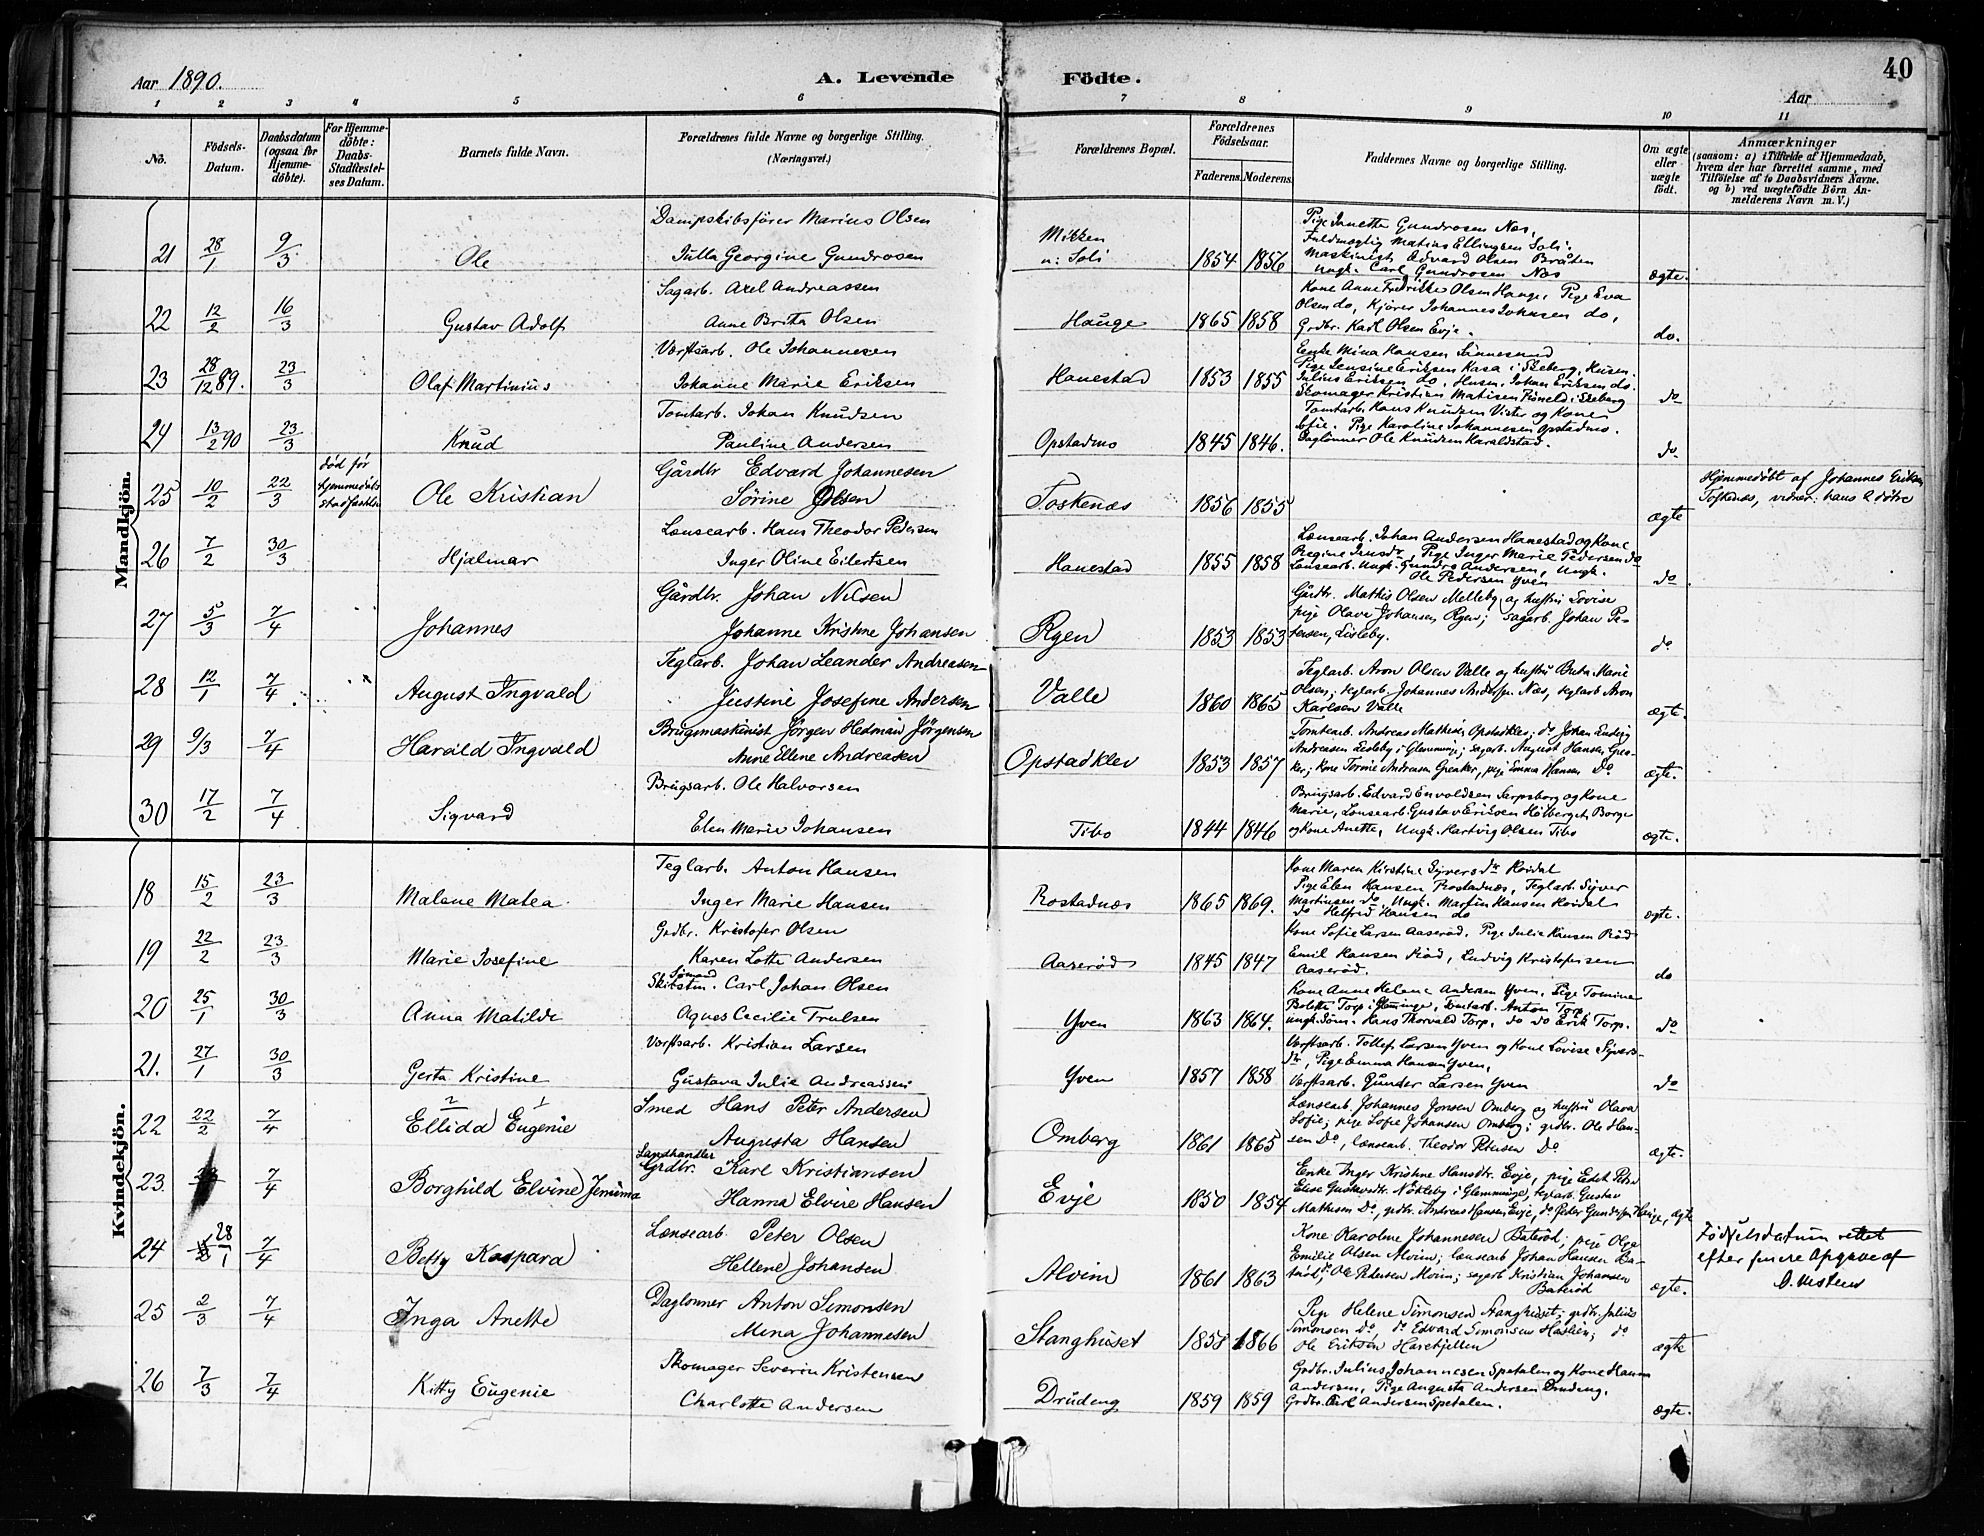 Aar 1890.
A. Levende Födte.
40
Aar
1 2 3 4 5 6 7 8 9 10 11
No.
Födsels-Datum.
Daabsdatum (ogsaa for Hjemme-döbte).
For Hjemme-döbte: Daabs-Stadfæstel-ses Datum.
Barnets fulde Navn.
Forældrenes fulde Navne og borgerlige Stilling. (Næringsvei.)
Forældrenes Bopæl.
Forældrenes Födselsaar.
Faderens. Moderens.
Faddernes Navne og borgerlige Stilling.
Om ægte eller uægte födt.
Anmærkninger
(saasom: a) i Tilfælde af Hjemmedaab, hvem der har forrettet samme, med Tilföielse af to Daabsvidners Navne. og b) ved uægtefödte Börn An-melderens Navn m. V.)
Mandkjön.
21 28/1 9/3 Ole
Dampskibsfører Marius Olsen
Julla Georgine Gundrosen
Mikken u: Soli 1854 1856
Pige Janette Gundrosen Næs,
Fuldmægtig Matius Ellingsen Soli.
Maskinist Edvard Olsen Bråten
Ungk. Carl Gundrosen Næs
ægte.
22 12/2 16/3 Gustav Adolf
Sagarb. Axel Andreassen
Anne Brita Olsen
Hauge 1865 1858
Kone Anne Fredrikke Olsen Hauge, Pige Eva
Olsen do, Kjører Johannes Johnsen do,
Grdbr. Karl Olsen Evje.
do.
23 28/12 89. 23/3 Olaf Martinius
Værftsarb. Ole Johannesen
Johanne Marie Eriksen
Hanestad 1853 1855
Enke Mina Hansen Sannesund
Pige Lensine Eriksen Kasa i Skeberg, Husm.
Julius Eriksen do, Husm. Johan Eriksen do.
Skomager Kristian Matisen i Skeberg
do
24 13/2 90 23/3 Knud
Tomtarb. Johan Knudsen
Pauline Andersen
Opstadmo 1845 1846.
Tomtarb. Hans Knudsen Vister og Kone
Sofie. Pige Karoline Johannesen Opstadmo.
Daglønner Ole Knudsen Haraldstad.
do
25 10/2 22/3 død før hjemmedåbs stadfæstelse Ole Kristian
Gårdbr Edvard Johannesen
Sørine Olsen
Toskenæs 1856 1855
ægte
Hjemmedøbt af Johannes Eriksen
Toskenæs, vidner: hans 2 døtre
26 7/2 30/3 Hjalmar
Lænsearb. Hans Theodor Pedersen
Inger Oline Eilertsen
Hanestad 1855 1858
Lænsearb. Johan Andersen Hanestad og Kone
Regine Jensdr, Pige Inger Marie Pedersen do
Lænsearb. Ungk. Gundro Andersen, Ungk.
Ole Pedersen Yven
do
27 5/3 7/4 Johannes
Gårdbr. Johan Nilsen
Johanne Kristine Johansen
Rgen 1853 1853
Gårdbr. Mathis Olsen Melleby og hustru Lovise
pige Olava Johansen, Rgen; sagarb. Johan Pe-
tersen, Lisleby.
do
28 12/1 7/4 August Ingvald
Teglarb. Johan Leander Andreasen
Justine Josefine Andersen
Valle 1860 1865
Teglarb. Aron Olsen Valle og hustru Berte Marie
Olsen; teglarb. Johannes Andersen Næs, teglarb Aron
Karlsen Valle
ægte.
29 9/3 7/4 Harald Ingvald
Brugsmaskinist Jørgen Hedman Jörgensen
Anne Ellene Andreasen
Opstadklev 1853 1857
Tomtearb. Andreas Mathisen Opstadklev; do Johan Ludvig
Andreasen Lisleby i Glemminge; sagarb. August Hansen Grea-
ker; Kone Tomine Andreasen Greaker, pige Emma Hansen Do
ægte.
30 17/2 7/4 Sigvard
Brugsarb. Ole Halvorsen
Elen Marie Johansen
Tibo 1844 1846
Brugsarb. Edvard Envoldsen Sarpsborg og Kone
Marie, Lænsearb. Gustav Eriksen Holberget, Borge
og Kone Anette, Ungk. Hartvig Olsen Tibo
ægte.
Kvindekjön.
18 15/2 23/3 Malene Matea
Teglarb. Anton Hansen
Inger Marie Hansen
Rostadnæs 1865 1869.
Kone Maren Kirstine Syversdr Hvidal
Pige Elen Hansen Rostadnæs, Teglarb. Syver
Martinsen do, Ungk. Martin Hansen Hvidal
do Helfred Hansen do
ægte.
19 22/2 23/3 Marie Josefine
Grdbr. Kristofer Olsen
Karen Lotte Andersen
Aaserød 1845 1847
Kone Sofie Larsen Aaserød, Pige Julie Hansen Rød
Emil Hansen Rød, Ludvig Kristofersen
Aaserød.
do
20 25/1 30/3 Anna Matilde
Sømand
Skibstm. Carl Johan Olsen
Agnes Cecilie Trulsen
Yven 1863 1864.
Kone Anne Helene Andersen Yven, Pige Tomine
Bolette Torp i Glemminge, Tomtarb. Anton Torp,
ungk. Søm. Hans Thorvald Torp, do do Erik Torp.
do
21. 27/1 30/3 Gerta Kristine
Værftsarb. Kristian Larsen
Gustava Julie Andreassen
Yven 1857 1858
Værftsarb. Tollef Larsen Yven og Kone Lovise Syvers-
dr, Pige Emma Hansen Yven,
Værftsarb. Gunder Larsen Yven
do
22 22/2 7/4 2 1 Ellida Eugenie
Smed Hans Peter Andersen
Augusta Hansen
Omberg 1861 1865
Lænsearb. Johannes Jonsen Omberg og hustru Olava
Sofie; pige Sofie Johansen Omberg; grdbr. Ole Han-
sen Do, lænsearb. Theodor Petersen Do
ægte.
23. 7/4 Borghild Elvine Jemima
Landhandler
Grdbr. Karl Kristiansen
Hanna Elvire Hansen
Evje 1850 1854
Enke Inger Kristine Hansdtr. Evje, pige Edet
Elise Gustavsdtr. Nökleby i Glemminge, teglarb. Gustav
Mathisen Do, grdbr. Andreas Hansen Evje, do Peder Gundersen Hauge,
ægte
24 28/1 7/4 Betty Kaspara
Lænsearb. Peter Olsen
Hellene Johansen
Alvim 1861 1863
Kone Karoline Johannesen Baterød; pige Olga
Emilie Olsen Alvim; lænsearb Johan Hansen Ba-
terød, do Ole Pedersen Alvim; sagarb Kristian Johansen
Baterød
ægte.
Fødselsdatum rettet
efter senere Opgave af
D. Msteus
25 2/3 7/4 Inga Anette
Daglønner Anton Simonsen
Mina Johannesen
Stanghuset 1858 1866
Pige Helene Simonsen Stanghuset; grdbr. Julius
Simonsen Do. do Edvard Simonsen Haslien; do
Ole Eriksen Harekjellen
ægte
26 7/3 7/4 Kitty Eugenie
Skomager Severin Kristensen
Charlotte Andersen
Drudeng 1859 1859
Grdbr. Julius Johannesen Spetalen og Kone Hanna
Andersen, Pige Augusta Andersen Drudeng.
Grdbr. Carl Andersen Spetalen.
ægte.